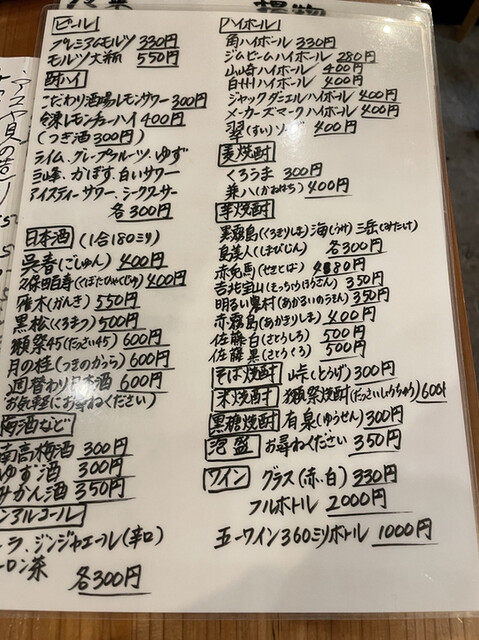 ビール
プレミアムモルツ 330円
モルツ大瓶 550円
酎ハイ
こだわり酒場レモンサワー 300円
冷凍レモンチューハイ 400円
(つぎ酒300円)
ライム、グレープフルーツ、ゆず
かぼす、白いサワー
アイスティーサワー、シークワーサー
各300円
日本酒 (1合180ミリ)
呉春(ごしゅん) 400円
久保田百寿(くぼたひゃくじゅ) 400円
雁木(がんぎ) 550円
黒松(くろまつ) 500円
獺祭45(だっさい45) 600円
月の桂(つきのかつら) 600円
週替わり日本酒 600円
お気軽にお尋ねください)
梅酒など
南高梅酒 300円
ゆず酒 300円
みかん酒 350円
ンアルコール
ーラ、ジンジャエール(辛口)
ーロン茶
各300円
ハイボール
角ハイボール 330円
ジムビームハイボール 280円
山崎ハイボール 400円
白州ハイボール 400円
ジャックダニエルハイボール 400円
メーカーズマークハイボール 400円
翠(すい)ソーダ 400円
麦焼酎
くろうま 300円
兼八(かねはち) 400円
芋焼酎
黒霧島(くろきりしま) 海(うみ) 三岳(みたけ)
島美人(しまびじん) 各300円
赤兎馬(せきとば) 480円
吉兆宝山(きっちょうほうざん) 350円
明るい農村(あかるいのうそん) 350円
赤霧島(あかきりしま) 400円
佐藤白(さとうしろ) 500円
佐藤黒(さとうくろ) 500円
そば焼酎 峠(とうげ) 300円
米焼酎 獺祭焼酎(だっさいしょうちゅう) 600円
黒糖焼酎 有泉(ゆうせん) 300円
泡盛 お尋ねください 350円
ワイン グラス(赤・白) 330円
フルボトル 2000円
五一ワイン360ミリボトル 1000円